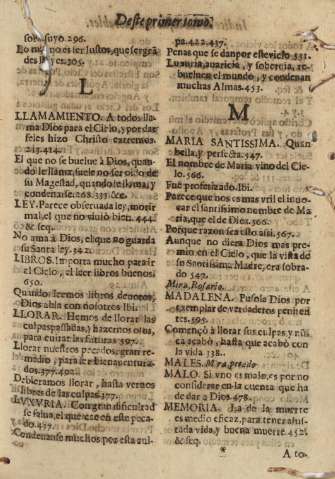 Deste primer tomo.
suyo. 296.
Lo mesmo es ser Justos, que ser grã
des Reyes. 305.
L
LLAMAMIENTO. A todos lla-
ma Dios para el Cielo, y por dar
seles hizo Christo extremos.
213. 414.
El que no se buelue à Dios, quan-
do le llama, suele no ser oido de
su Magestad, quando le llama, y
condenarse. 268. 331. &c.
LEY. Parece obseruada ley, mo-
mal, el que no viuió bien. 444.
& seq.
No ama à Dios, el que no guarda
su Santa ley. 342.
LIBROS. Importa mucho para ir
el Cielo, el leer libros buenos
650.
Quando leemos libros deuotos,
Dios habla con nosotros Ibi.
LLORAR. Hemos de llorar las
culpas passadas, y hazernos otros,
para euitar las futuras. 597.
Llorar nuestros pecados, gran re-
medio para ir à bienauentura-
dos. 377. 401.
Debieramos llorar, hasta vernos
libres de las culpas. 377.
LVXVRIA. Con gran dificultad
se salua, el que cae en este peca-
do. 437.
Condenanse muchos por esta cul-
pa. 422. 437.
Penas que se dan por este vicio. 531.
Luxuria, auaricia, y soberuia, re-
bueluen el mundo, y condenan
muchas Almas. 453.
M
MARIA SANTISSIMA. Quan
bella, y perfecta. 547.
El nombre de Maria vino del Cie-
lo. 566.
Fuè profetizado. Ibi.
Parece que nos es mas vtil el inuo-
car el santissimo nombre de Ma
ria, que el de Dios. 566.
Porque razon sea esto assi. 567.
Aunque no diera Dios mas pre-
mio en el Cielo, que la vista de
su Santissima Madre, era sobra-
do. 549.
Mira, Rosario.
MADALENA. Pusola Dios por
exemplar de verdaderos peniten-
tes. 595.
Començò à llorar sus culpas, y nũ-
ca acabó, hasta que acabó con
la vida. 338.
MALES. Mira, pecado.
MALO. Si vno es malo, es por no
considerarse en la cuenta que ha
de dar à Dios. 478.
MEMORIA. La de la muerte
es medio eficaz, para tener ajus-
rada vida, y buena muerte. 452.
& seq.
A to-